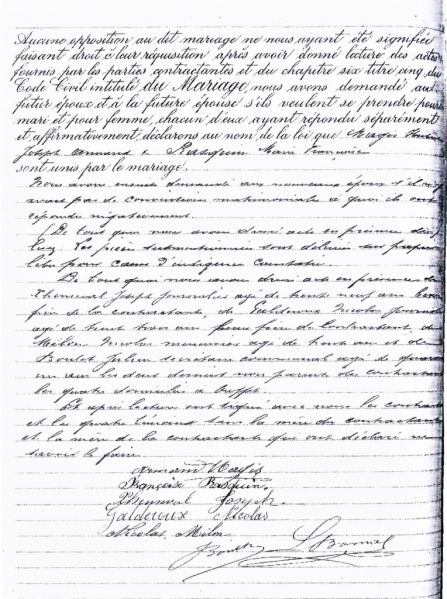 Aucune opposition au dit mariage ne nous ayant été signifiée
faisant droit à leur réquisition après avoir donné lecture des actes
fournis par les parties contractantes et du chapitre six titre cinq du
Code Civil intitulé du Mariage, nous avons demandé au
futur époux et à la future épouse s'ils veulent se prendre pour
mari et pour femme, chacun d'eux ayant répondu séparément
et affirmativement, déclarons au nom de la loi que Magis
Joseph Armand & Rasquin Marie Françoise
sont unis par le mariage.
Nous avons ensuite demandé aux nouveaux époux s'il
pas de conventions matrimoniales à quoi ils ont
répondu négativement.
De tout quoi nous avons dressé acte en présence
Les pièces susmentionnées sont
pour cause d'indigence constatée
De tout quoi nous avons dressé acte en présence de
Joseph journalier âgé de trente neuf ans
de la contractante, de Nicolas journalier
âgé de trente trois ans frère de la contractante, de
Milen Nicolas âgé de trente ans et de
Julien secrétaire communal âgé de quarante
un ans les deux derniers non parents des contractants
les quatre domiciliés à
Et après lecture ont signé avec nous les contractants
et les quatre témoins sans la mère du contractant
et la mère de la contractante qui ont déclaré ne
savoir le faire.
Armand Magis
Françoise Rasquin
Joseph
Nicolas
Nicolas Milen